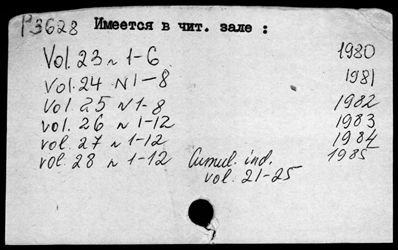 P3628 Имеется в чит. зале :
Vol. 23 N 1-6 1980
Vol. 24 N 1-8 1981
Vol. 25 N 1-8 1982
vol. 26 N 1-12 1983
vol. 27 N 1-12 1984
vol. 28 N 1-12 Cumul. ind. 1985
vol. 21-25